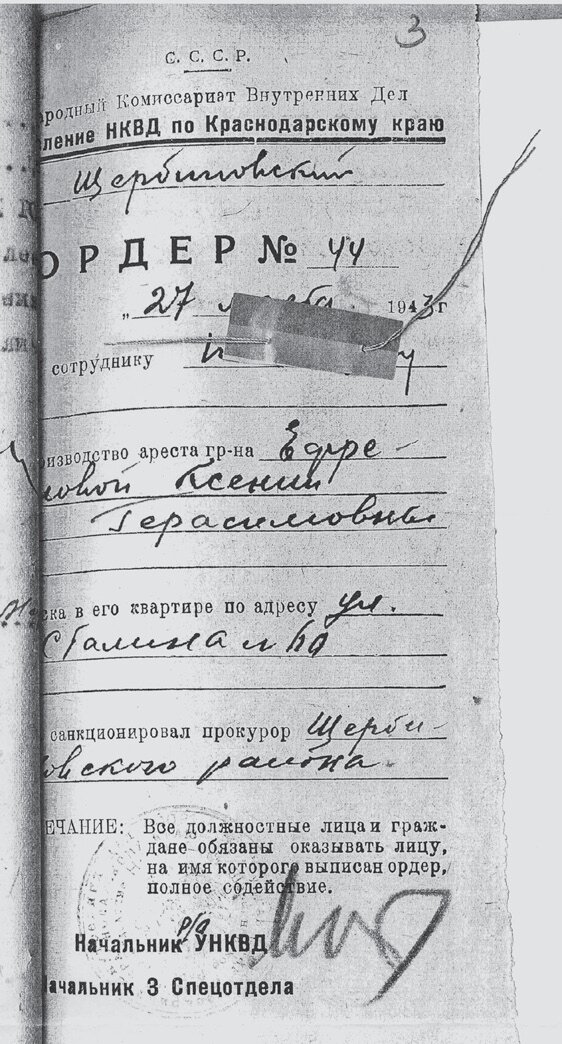 3
С. С. С. Р.
родный Комиссариат Внутренних Дел
ление НКВД по Краснодарскому краю
Щербиновский
ОРДЕР № 44
„ 27 1943 г
сотруднику
изводство ареста гр-на Ефре-
мовой Ксении
Герасимовны
ска в его квартире по адресу ул.
Сталина
санкционировал прокурор Щерби-
овского района.
ЕЧАНИЕ: Все должностные лица и граж-
дане обязаны оказывать лицу,
на имя которого выписан ордер,
полное содействие.
р/о
Начальник УНКВД
ачальник 3 Спецотдела